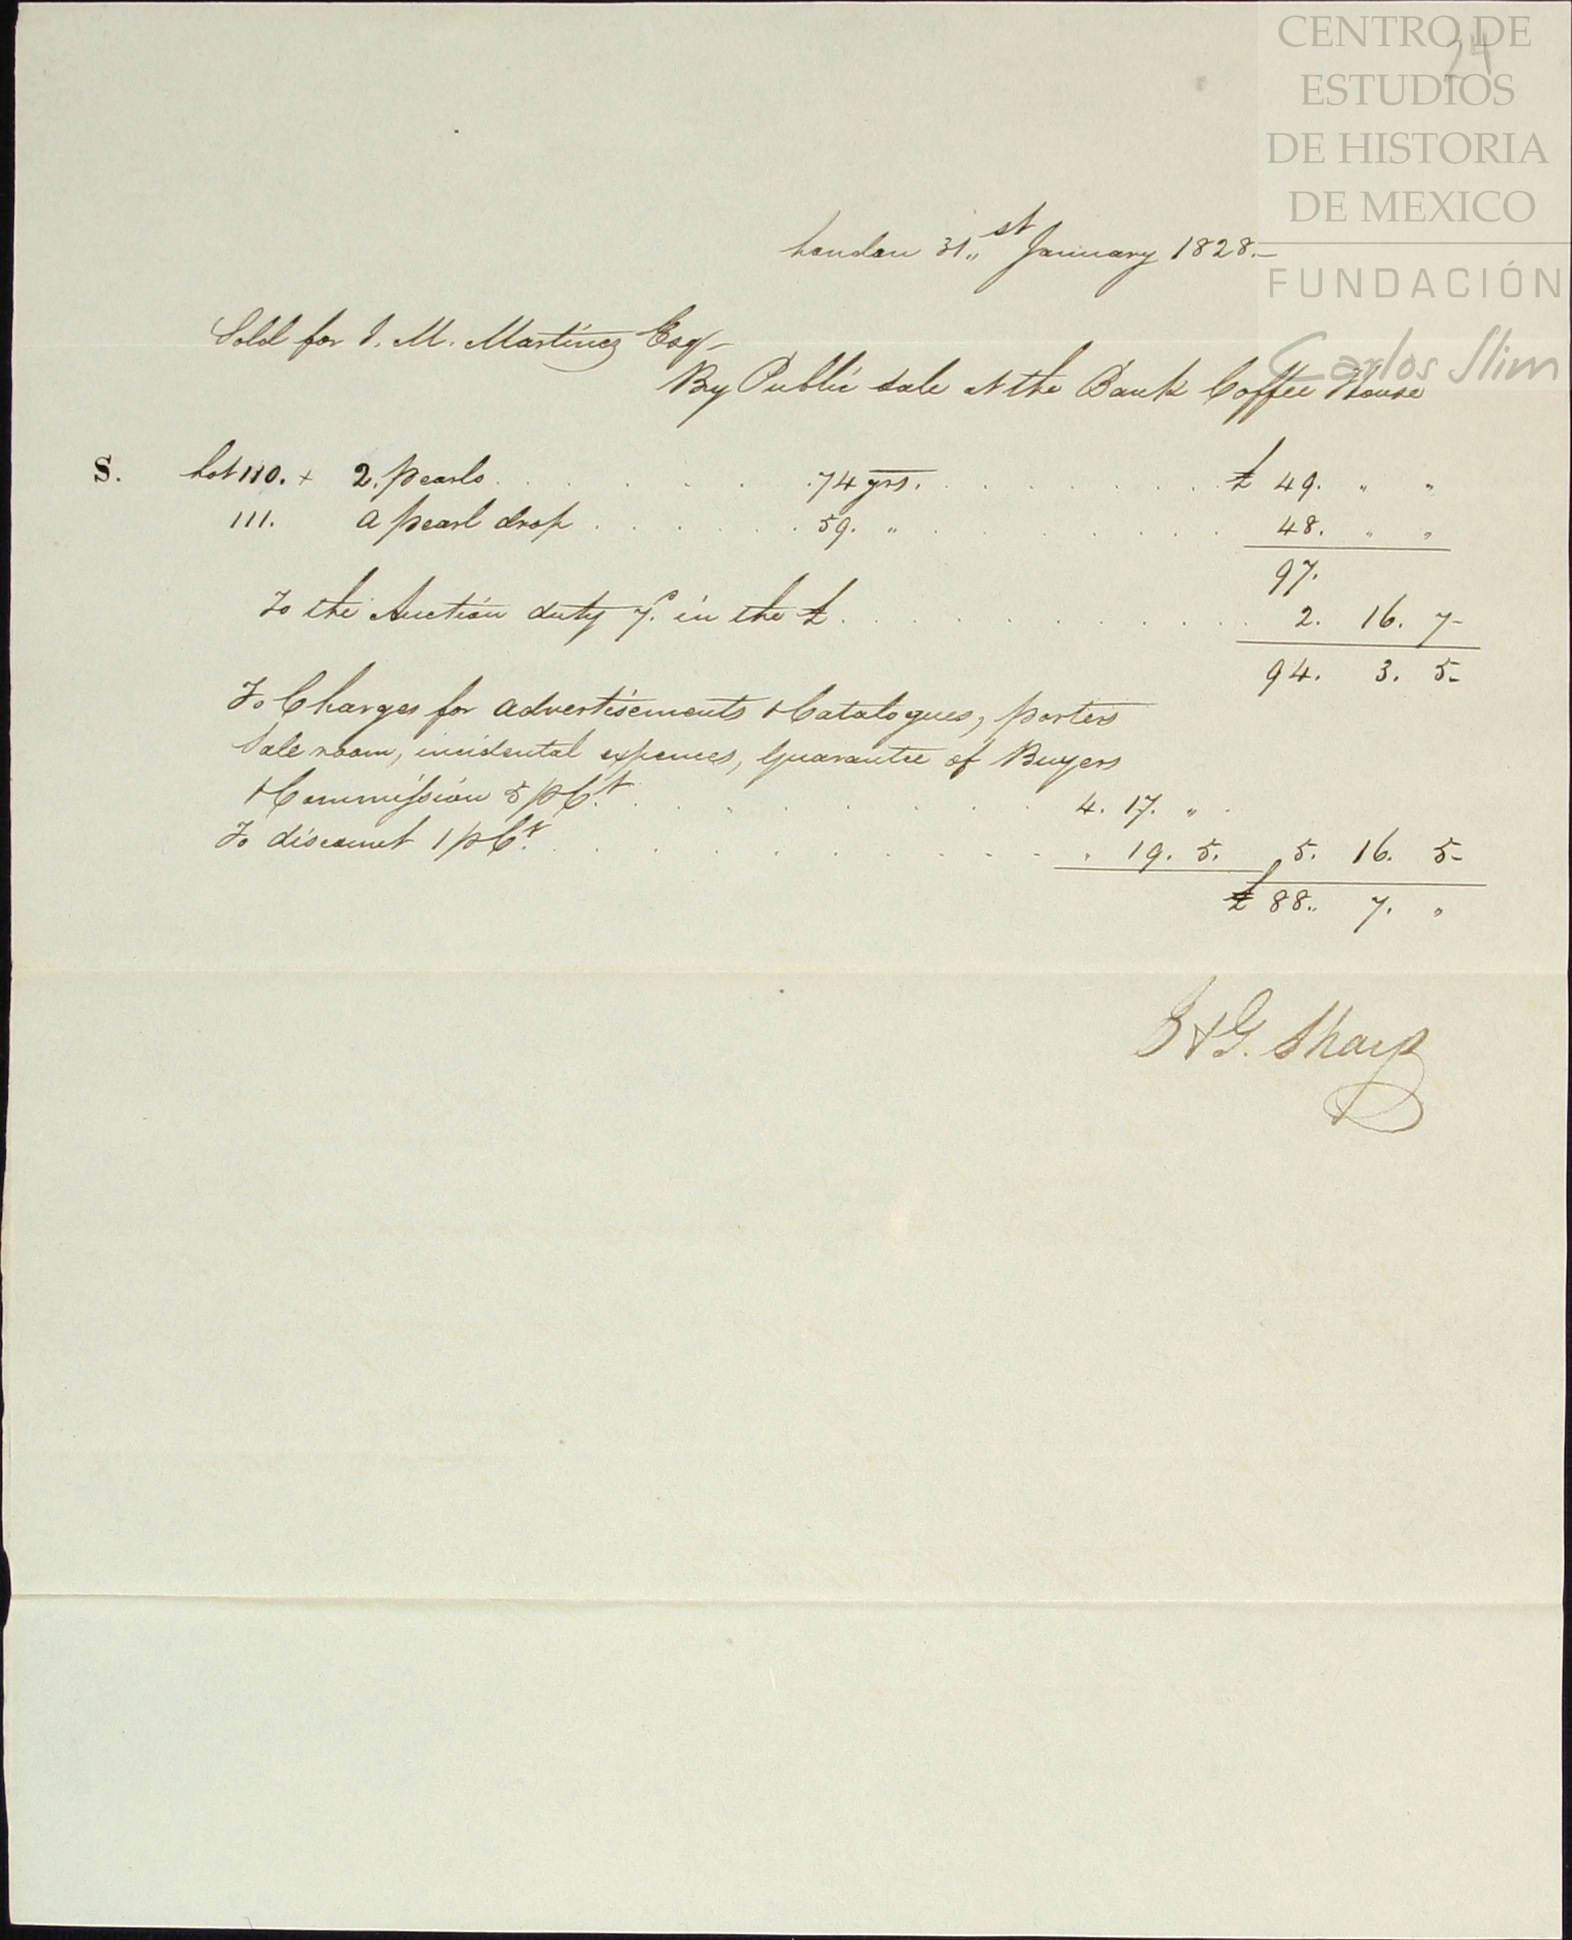 CENTRO DE
ESTUDIOS
DE HISTORIA
DE MEXICO
FUNDACIÓN
Carlos Slim
24
London 31,, st January 1828.—
Sold for J. M. Martinez Esq—
By Public Sale at the Bank Coffee House
S. Lot 110. + 2. pearls . . . . . . . 74 grs. . . . . . . . £ 49. " "
111. a pearl drop . . . . . . . 59. " . . . . . . . 48. " "
97.
To the Auction duty 7.^d in the £ . . . . . . . . . 2. 16. 7-
94. 3. 5-
To Charges for advertisements & Catalogues, porters
Sale room, incidental expences, Guarantee of Buyers
& Commission 5 p C.t . . . . . . . . 4. 17. " .
To discount 1 p C.t . . . . . . . . . " 19. 5. 5. 16. 5-
£ 88.. 7. "
& G. Sharp